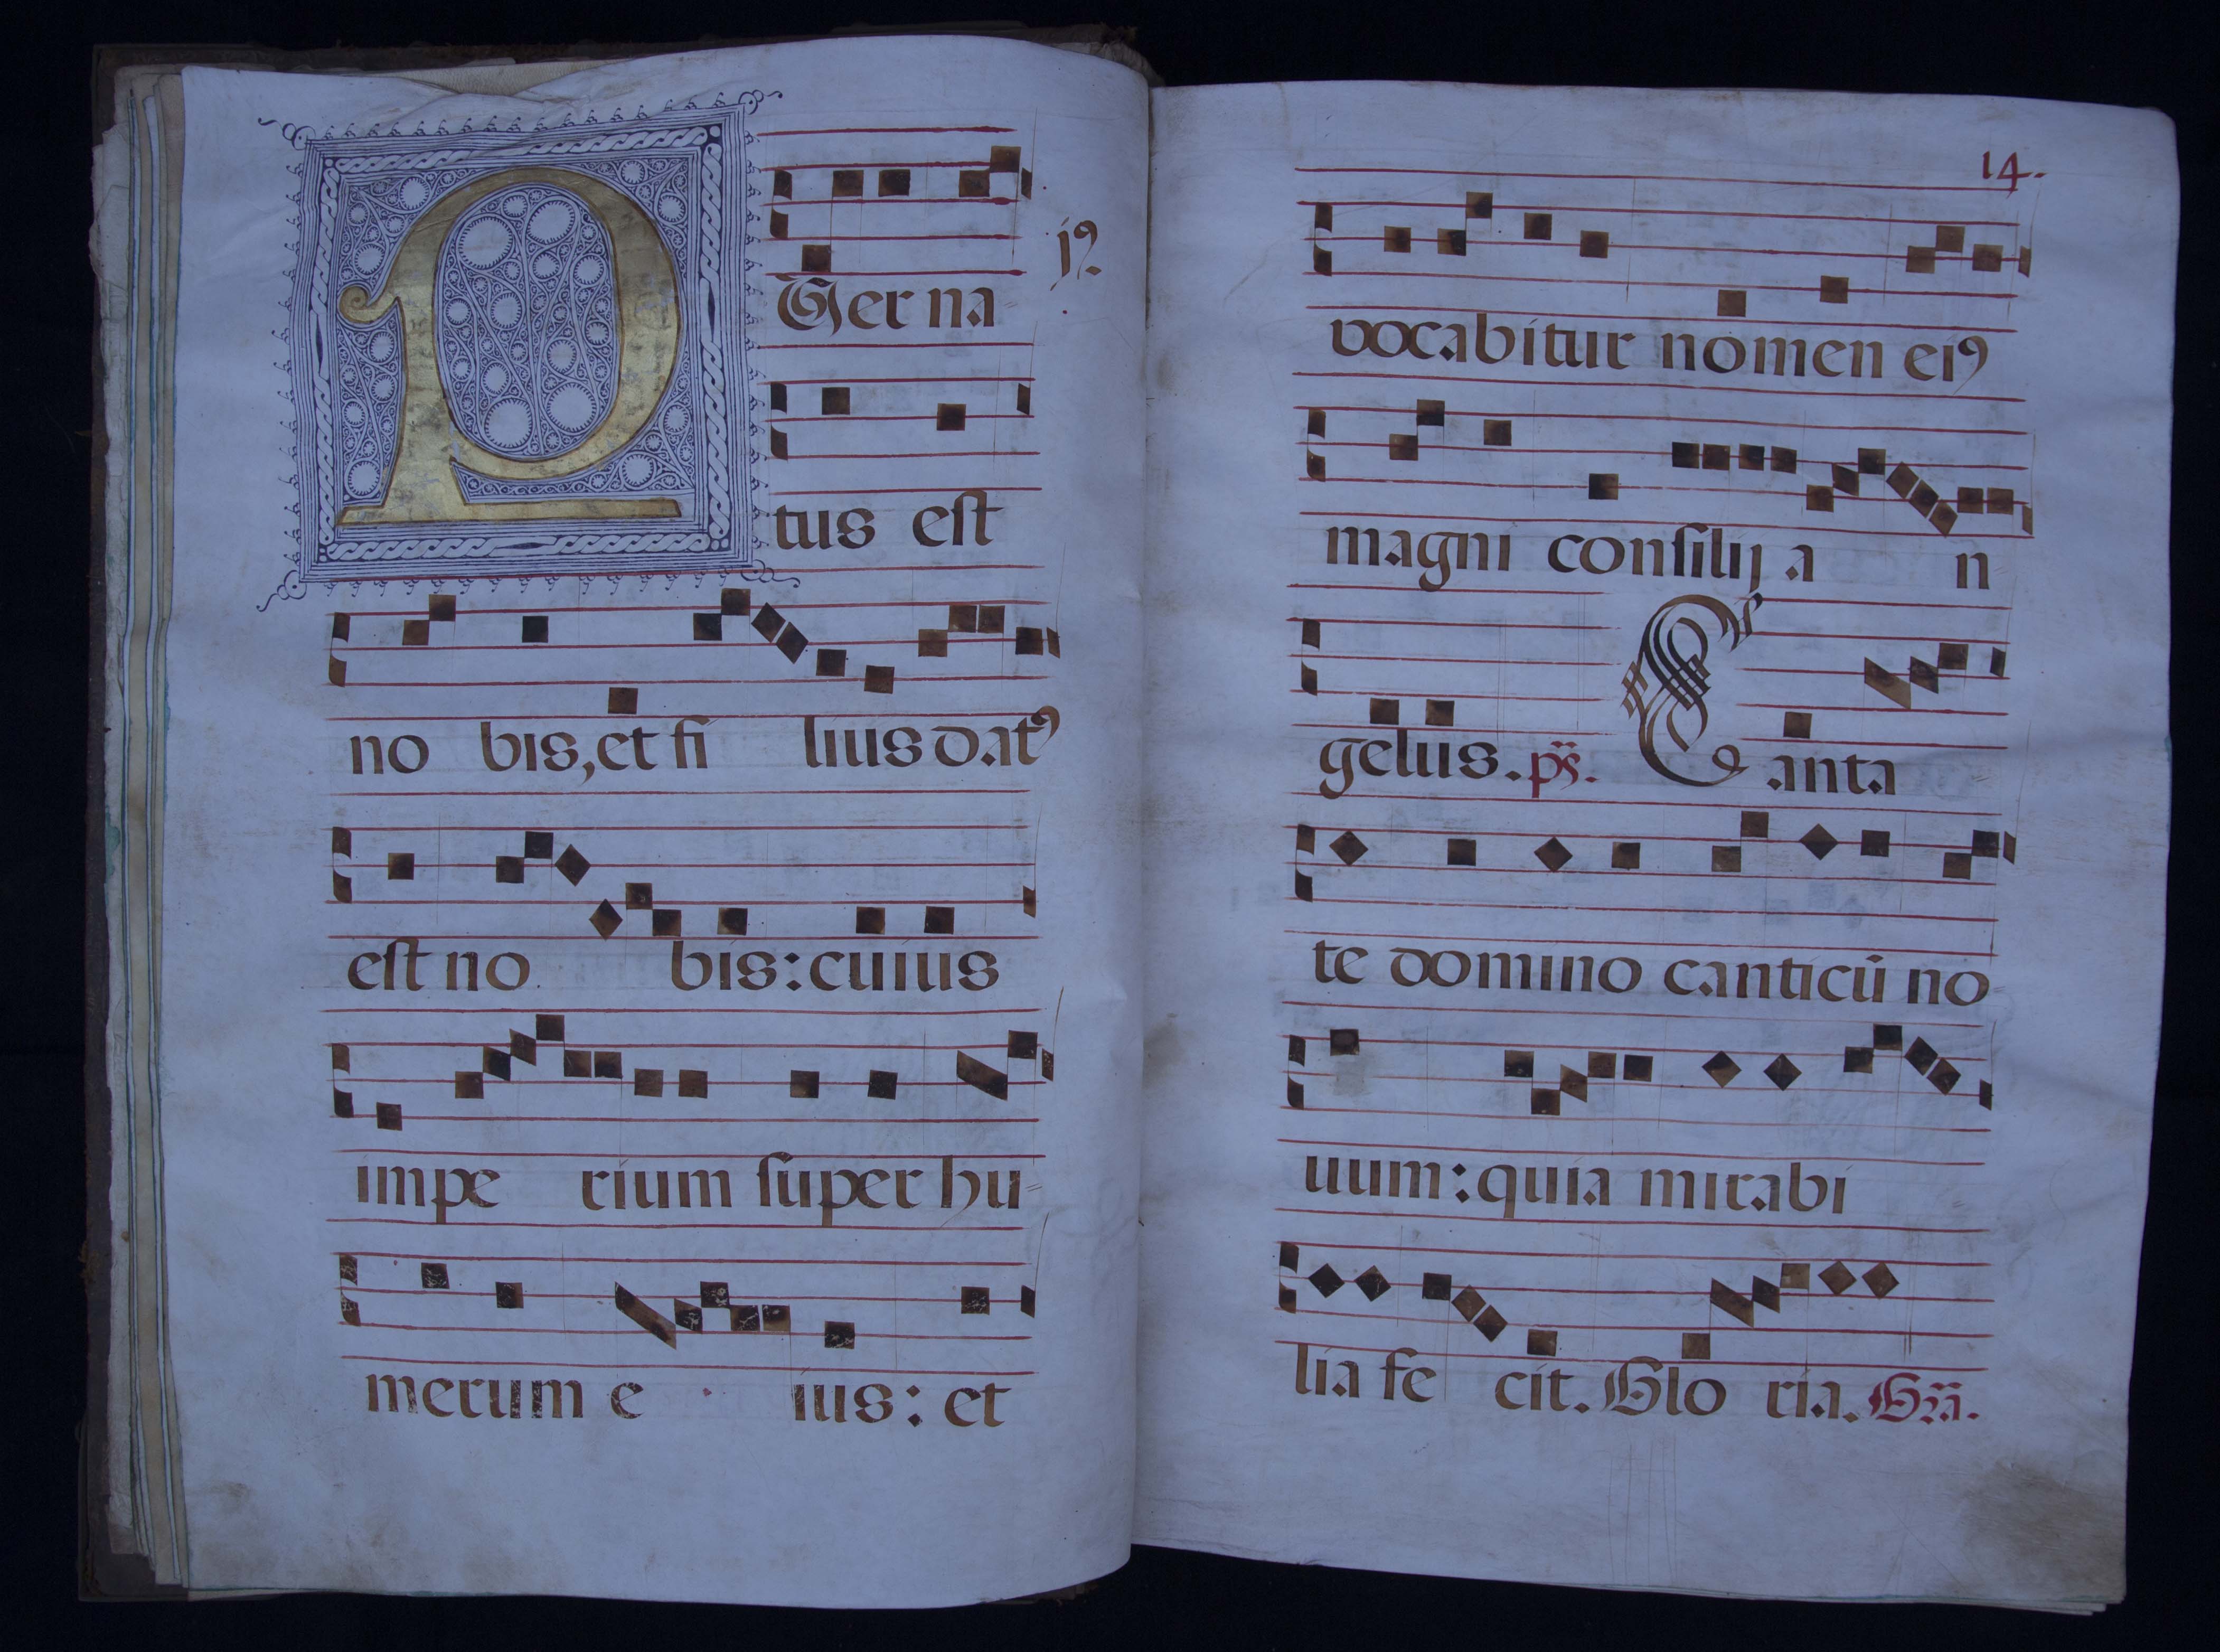 PUer na
jꝰ.
tus eſt
no bis, et fi lius datꝰ
eſt no bis: cuius
impe rium ſuper hu
merum e ius: et
14.
vocabitur nomen eiꝰ
magni conſilij a n
gelus. ps̈. Canta
te domino canticū no
uum: quia mirabi
lia fe cit. Glo ria. Gr̃a.